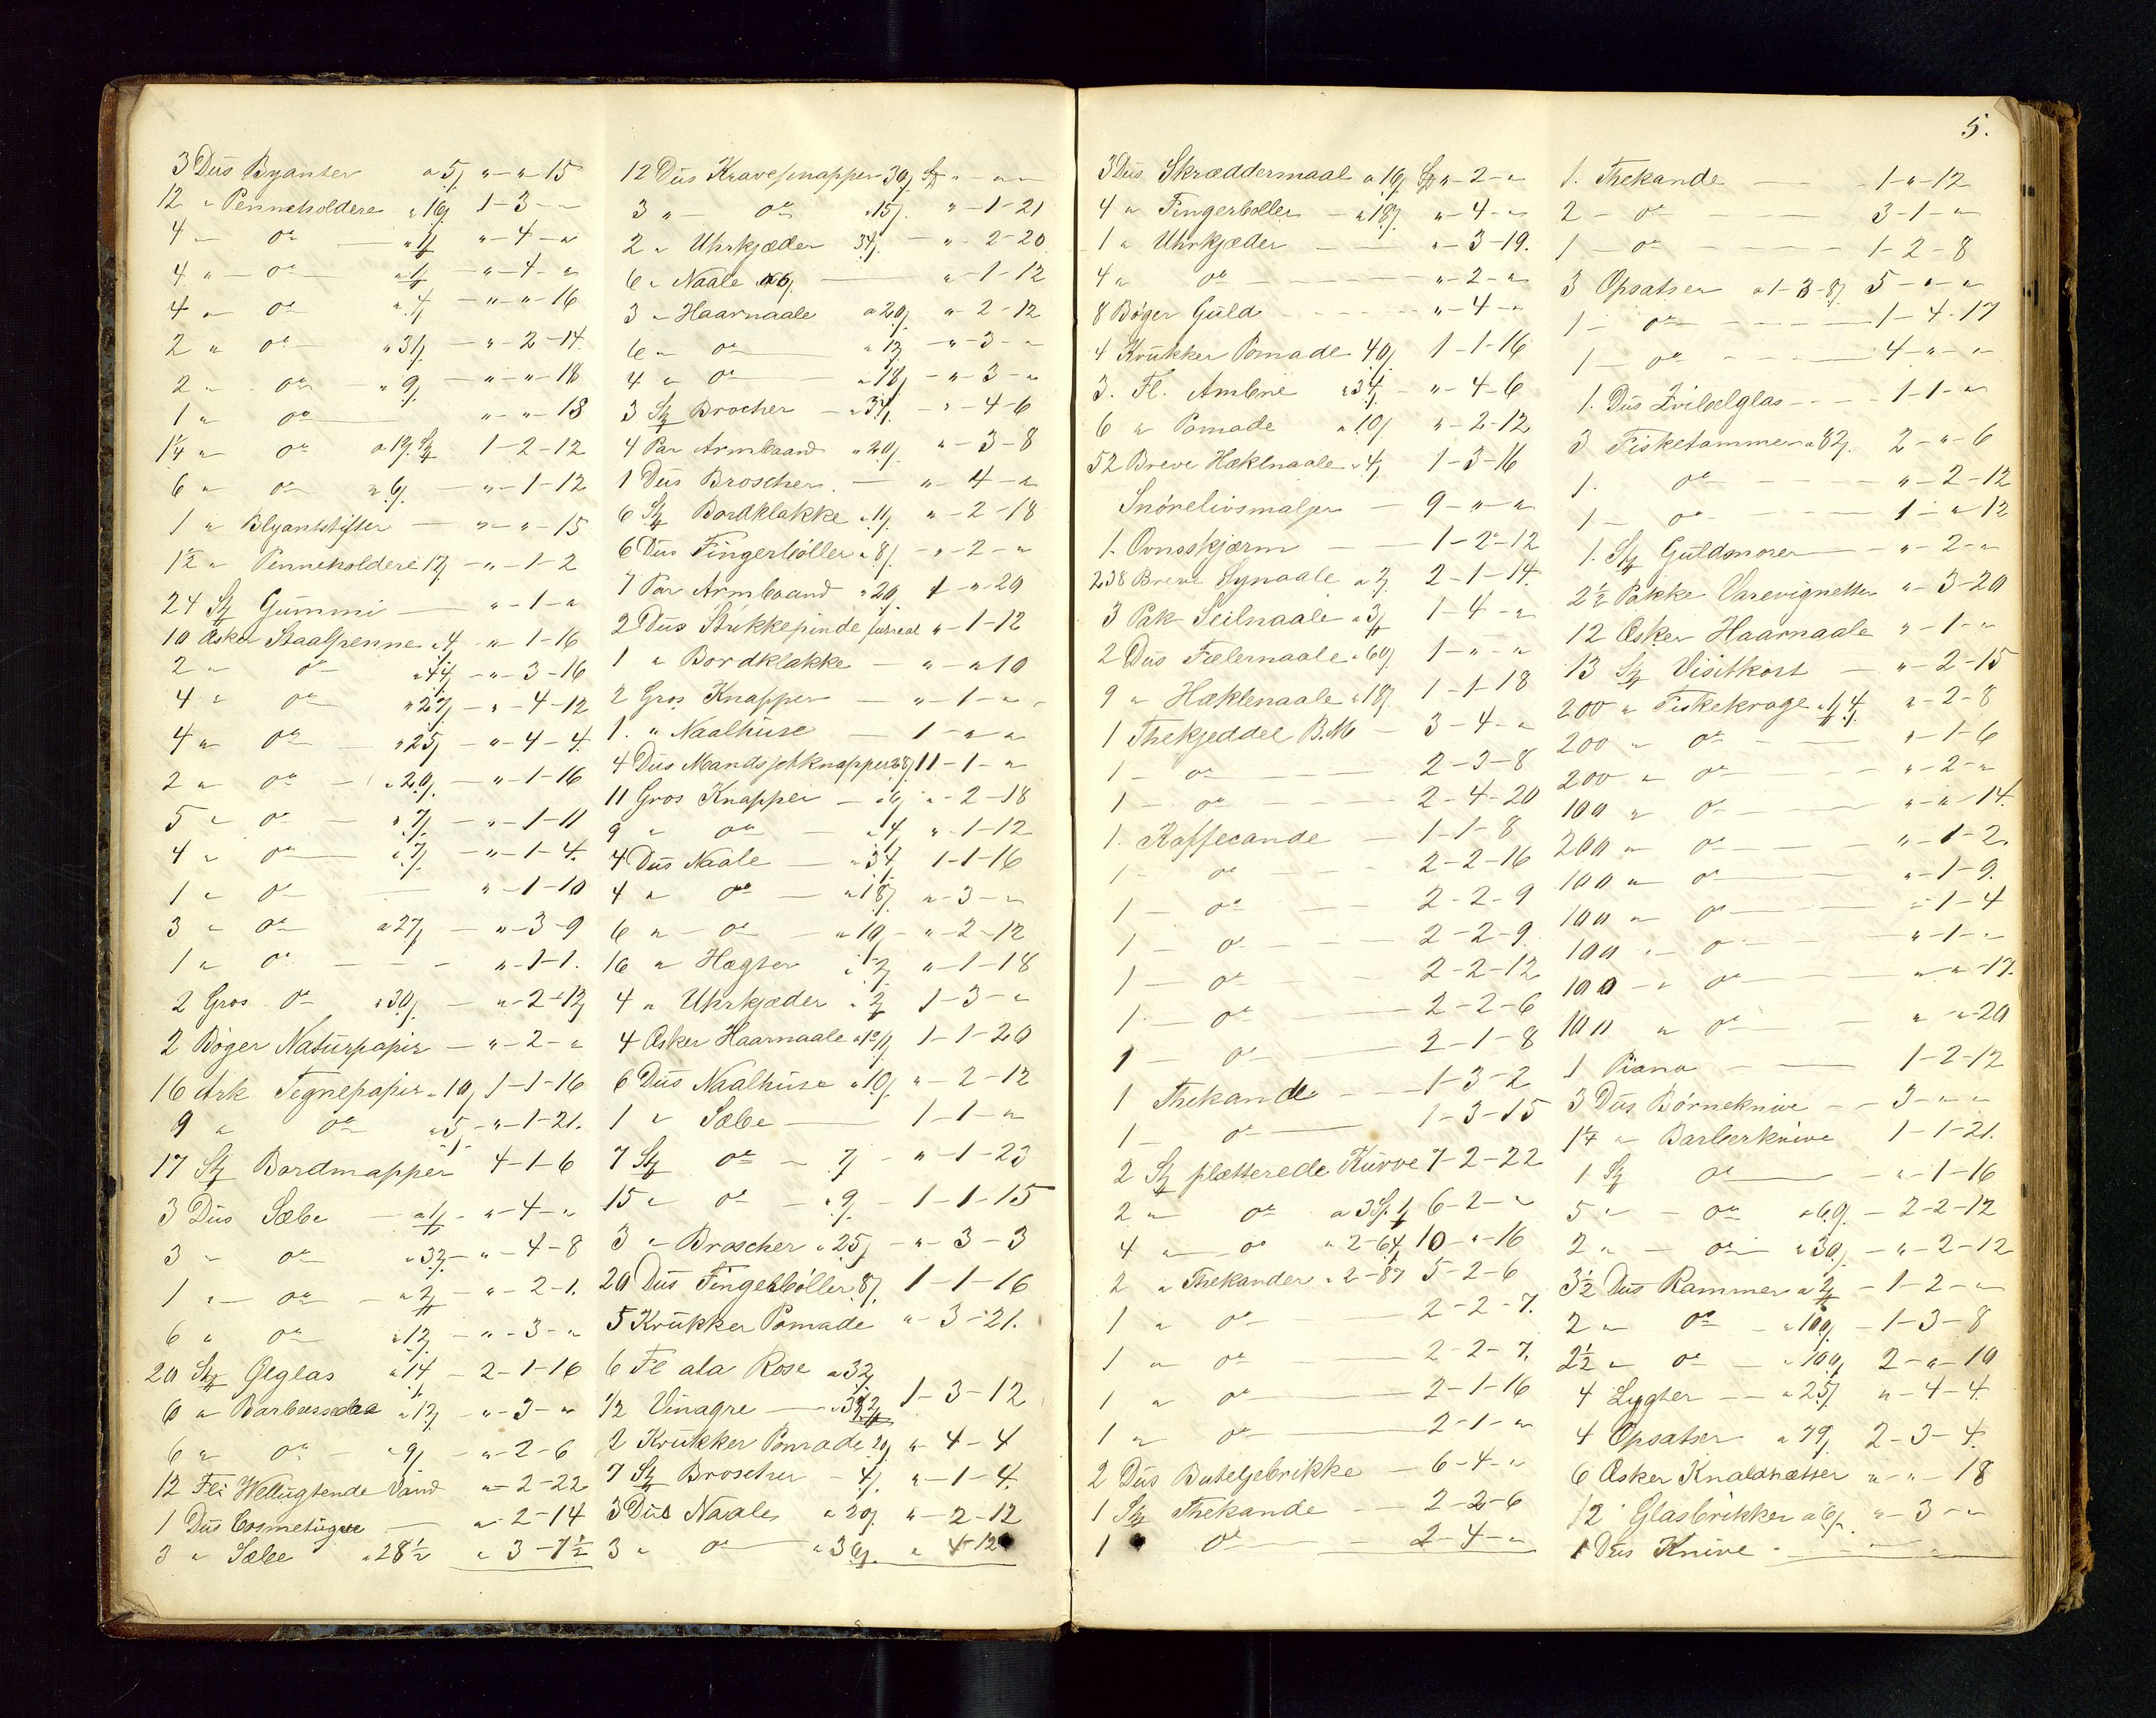 3 Dus Byanter a 5/ " - " - 15
12 " Penneholdere " 16/ 1 - 3 - "
4 " do " 1/ " - 4 - "
4 " - do a 1/ " - 4 - "
4 " do " 4/ - " - " - 16
2 " do " 31/ - " - 2 - 14
2 " do " 9/ - " - " - 18
1 " do " - " - 18
1¼ " do a 19/ 1 - 2 - 12
6 " do a 6/ - " - 1 - 12
1 " Blyantstifter - " - " - 15
1½ " Penneholdere 17/ - " - 1 - 2
24 Stk Gummi - " - 1 - "
10 Æsker Staalpenne a 4/ - " - 1 - 16
2 " do " 44/ - " - 3 - 16
4 " do " 27/ - " - 4 - 12
4 " do " 25/ - " - 4 - 4
2 " do - " 20/ - " - 1 - 16
5 " do - " 7/ - " - 1 - 11
4 " do " 7/ - " - 1 - 4
1 " do - " - 1 - 10
3 " do a 27/ - " - 3 - 9
1 " do - - - " - 1 - 1
2 Gros do a 30/ - " - 2 - 12
2 Bøger Naturpapir - " - 2 - "
16 Ark Tegnepapir " 10/ 1 - 1 - 16
9 " do a 5/ - " - 1 - 21
17 Stk Bordmapper 4 - 1 - 6
3 Dus Sæbe - a 1/ - " - 4 - "
3 " do a 32/ - " - 4 - 8
1 " - do - a 2/ - " - 2 - 1
6 " do a 12/ - " - 3 - "
20 Stk Øeglas a 14 - 2 - 1 - 16
6 " a 12/ - " - 3 - "
6 " do - " 9/ - " - 2 - 6
12 Fl: Vellugtende Vand " - 2 - 22
1 Dus Cosmetique - " - 2 - 14
3 " Sæbe a 28½ " 3 - 7½
12 Dus Kraveknapper 30/ " - " - "
3 " - do " 15/ " - 1 - 21
2 " Uhrkjæder 34/ - " - 2 - 20
6 " Naale a 6/ " - 1 - 12
3 " Haarnaale a 20/ " - 2 - 12
6 " do a 12/ - " - 3 - "
4 " do " 18/ - " - 3 - "
3 Stk Brocher - a 34/ - " - 4 - 6
4 Par Armbaand " 20/ " - 3 - 8
1 Dus Broscher - " - 4 - "
6 Stk Bordklokke a 11/ " - 2 - 18
6 Dus Fingerbøller a 8/ - " - 2 - "
7 Par Armbaand " 20/ 1 - " - 20
2 Dus Strikkepinde " - 1 - 12
1 " Bordklokke - " - " 10
2 Gros Knapper - " - 1 - "
1 " Naalhuse - 1 - " - "
4 Dus Mandsjetknapper 11 - 1 - "
11 Gros Knapper - a 6/ " - 2 - 18
9 " do - " 4/ " - 1 - 12
4 Dus Naale - " 34/ 1 - 1 - 16
4 " do - a 18/ " - 3 - "
6 " - do - " 10/ - " - 2 - 12
16 " Hægter a 2/ " - 1 - 18
4 " Uhrkjæder a 2/ 1 - 3 - "
4 Æsker Haarnaale 1 - 1 - 20
6 Dus Naalhuse a 10/ " - 2 - 12
1 " Sæbe - 1 - 1 - "
7 Stk do - 7/ - " - 1 - 23
15 " do - " 9/ - 1 - 1 - 15
3 " Broscher " 25/ - " - 3 - 3
20 Dus Fingerbøller 8/ 1 - 1 - 16
5 Krukker Pomade " - 3 - 21
6 Fl ala Rose a 32/
1/2 Vinagre - 1 - 3 - 12
2 Krukker Pomade " - 4 - 4
7 Stk Broscher - 4/ " - 1 - 4
3 Dus Naale a 20/ " - 2 - 12
3 " do " 36/ " 4 - 12
5.
3 Dus Skræddermaal a 16/ " - 2 - "
4 " Fingerbøller - a 18/ " - 4 - "
1 " Uhrkjæder - " - 3 - 19
4 " do - " - 2 - "
8 Bøger Guld - " - 4 - "
4 Krukker Pomade 40/ 1 - 1 - 16
3. Fl. Ambre a 34/ - " - 4 - 6
6 " Pomade a 10/ " - 2 - 12
52 Breve Hæklnaale a 4/ 1 - 3 - 16
Snørelivsmaljer - 9 - " - "
1. Ovnsskjærm - 1 - 2 - 12
238 Breve Synaale a 2/ 2 - 1 - 14
3 Pak Seilnaale a 3/ 1 - 4 - "
2 Dus Følernaale " 60/ 1 - " - "
9 " Hæklenaale a 18/ 1 - 1 - 18
1 Thekjeddel B.M. - 3 - 4 - "
1 - do - 2 - 3 - 8
1 - do - 2 - 4 - 20
1. Kaffecande - 1 - 1 - 8
1 - do - 2 - 2 - 16
1 - do - 2 - 2 - 9
1 - do - 2 - 2 - 9
1 - do - 2 - 2 - 12
1 - do - 2 - 2 - 6
1 - do - 2 - 1 - 8
1 Thekande - 1 - 3 - 2
1 - do - 1 - 3 - 15
2 Stk pletterede Kurve 7 - 2 - 22
2 " do 6 - 2 - "
4 " do " 2 - 64 10 - " - 16
2 " Thekander a 2 - 87 5 - 2 - 6
1 " do - 2 - 2 - 7
1 " do - 2 - 2 - 7
1 " do - 2 - 1 - 16
1 " do - 2 - 1 - "
2 Dus Buteljebrikke - 6 - 4 - "
1 Stk Thekande - 2 - 2 - 6
1 " do - 2 - 4 - "
1. Thekande - 1 - " - 12
2 - do - 3 - 1 - "
1 - do - 1 - 2 - 8
3 Opsatser a 1 - 3 - 8/ 5 - " - "
1 - do - 1 - 4 - 17
1 - do - 4 - " - "
1. Dus Zvibelglas - 1 - 1 - "
3 Fisketammer a 82/ 2 - " - 6
1. do - " - 2 - 12
1 - do - 1 - " 12
1. Stk Guldsnorer - " - 2 - "
2½ Pakke Varevignetter " - 3 - 20
12 Æsker Haarnaale " - 1 - "
13 Stk Visitkort - " - 2 - 15
200 " Fiskekroge " - 2 - 8
200 " do - " - 1 - 6
200 " do - " - 2 - "
100 " do - " - " - 14
200 " do - " - 1 - 2
100 " do - " - 1 - 9
100 " do - " - 1 - 4
100 " do - " - 1 - "
100 - " do - " - " - 17
100 " do - " - " - 20
1 Piano - 1 - 2 - 12
3 Dus Børneknive - 3 - " - "
1¼ " Barberknive 1 - 1 - 21
1 Stk do - " - 1 - 16
5 " - do a 60/ - 2 - 2 - 12
2 " - do a 30/ - " - 2 - 12
3½ Dus Rammer a 2/ - 1 - 2 - "
2 " do - " 100/ - 1 - 3 - 8
2½ " do - " 100/ 2 - " - 10
4 Lygter - a 25/ " - 4 - 4
4 Opsatser a 79/ 2 - 3 - 4
6 Æsker Knaldhætter " - " - 18
12 " Glasbrikker a 6/ " - 3 - "
1 Dus Knive -